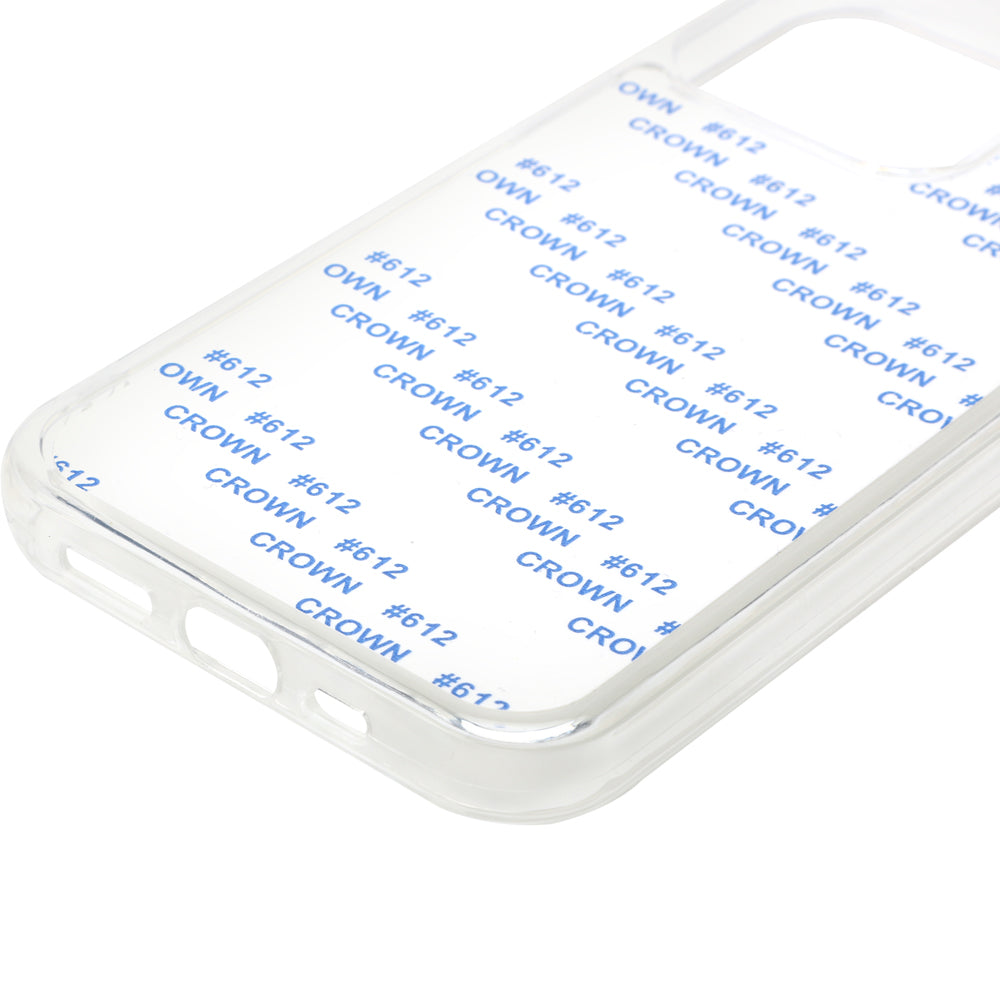 OWN #612
CROWN #612
CROWN #612
CROWN #612
CROWN #612
CROWN #
CROWN
CROWN #
CR
#612
OWN #612
CROWN #612
CROWN #612
CROWN #612
CROWN #612
CROWN #
CROW
#612
OWN #612
CROWN #612
CROWN #612
CROWN #612
CROWN #612
CROWN #
CROW
#612
OWN #612
CROWN #612
CROWN #612
CROWN #612
CROWN #612
612